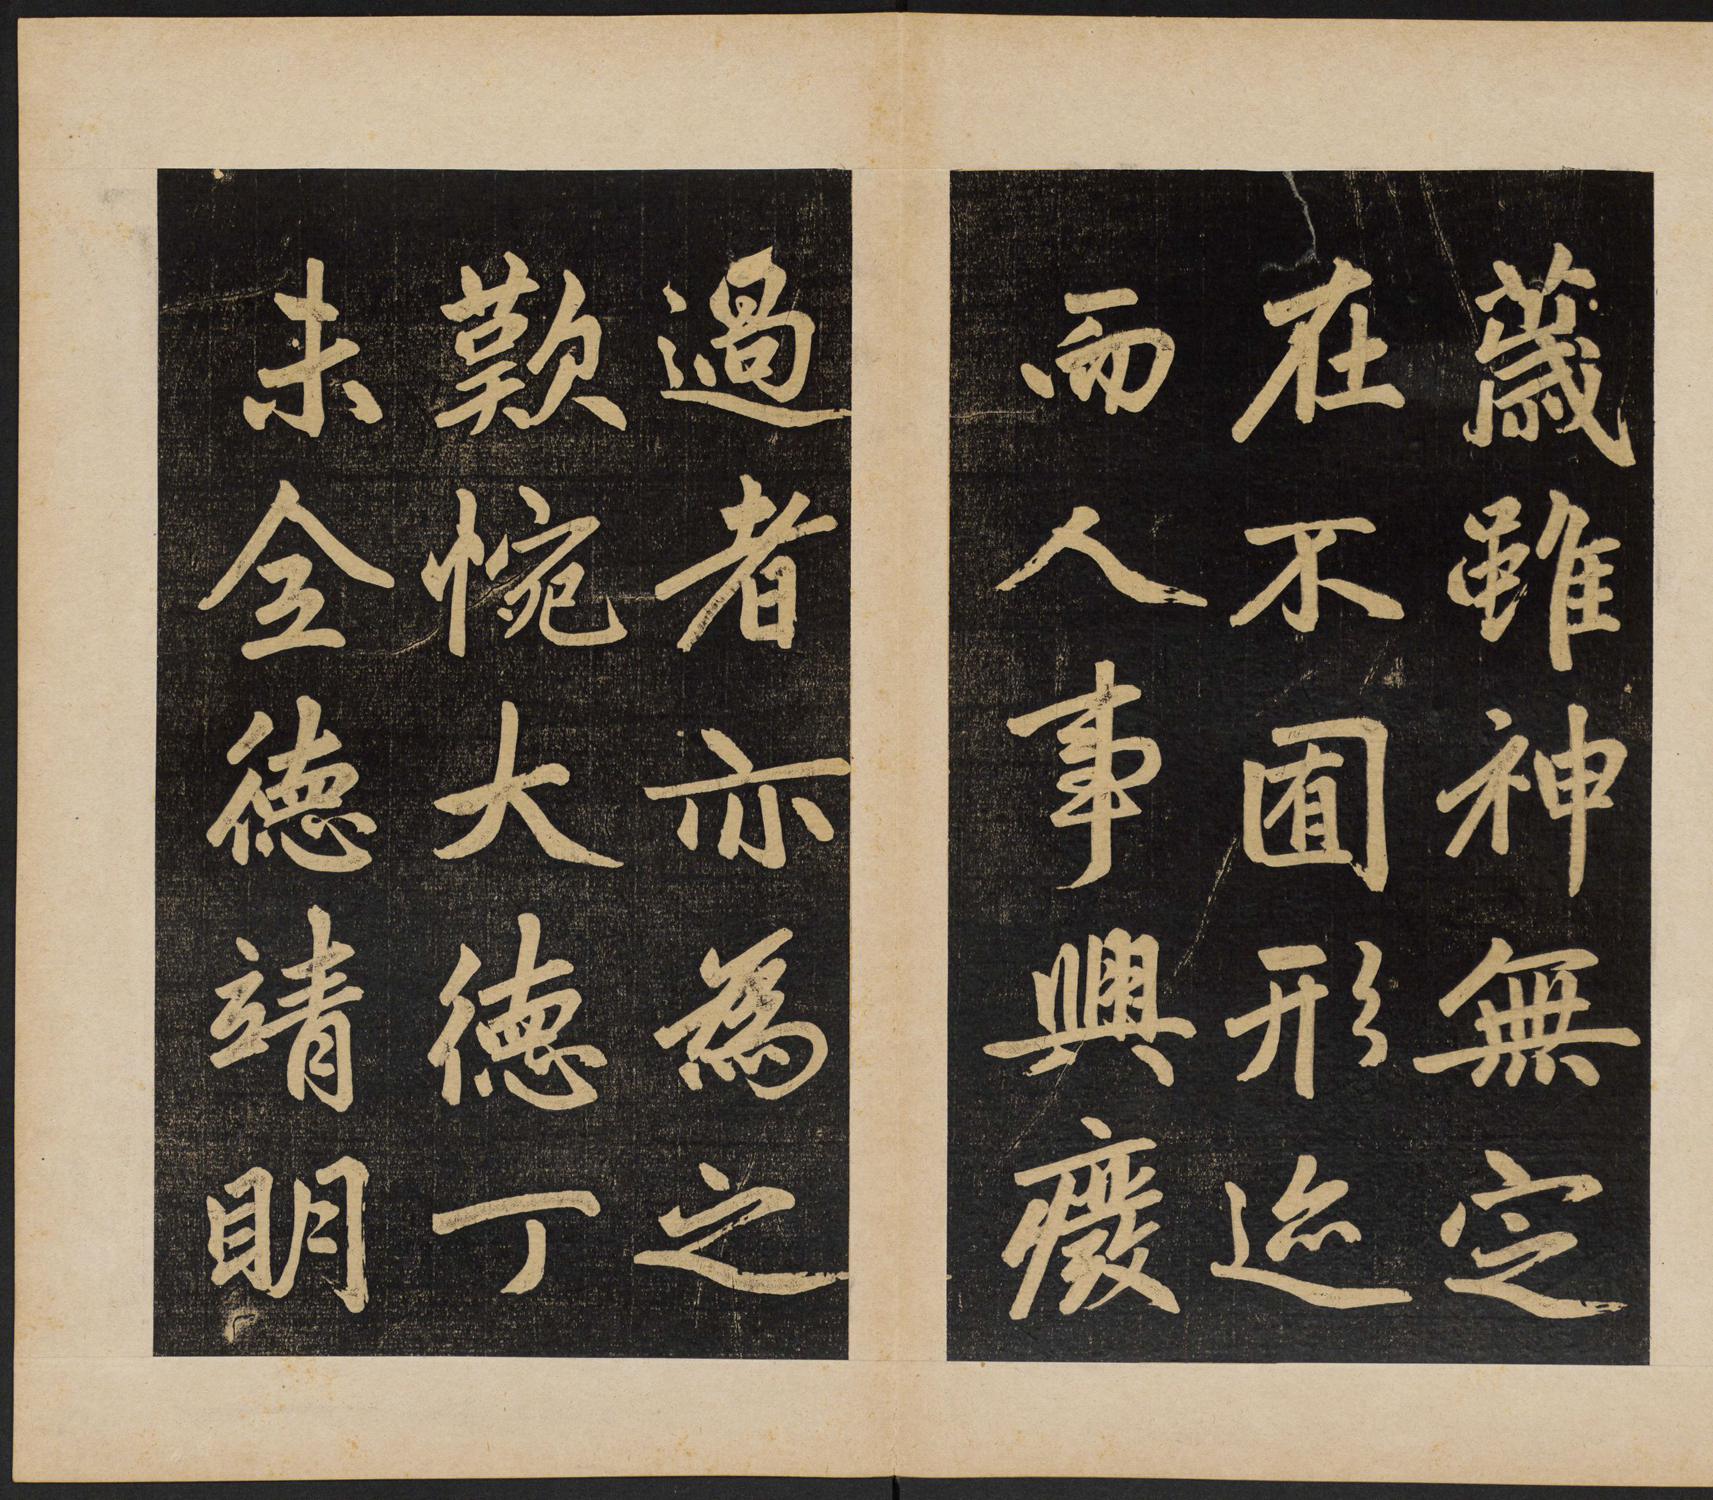 歲雖神無定
在不囿形迹
而人事興廢
過者亦為之
歎惋大德丁
未全德靖明